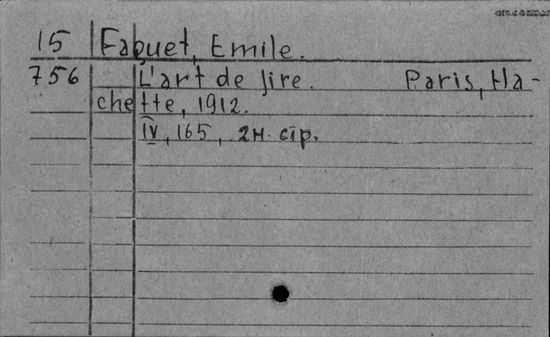 15 Faguet, Emile.
756 L'art de lire. Paris, Ha-
chette, 1912.
IV, 165, 2н. сір.